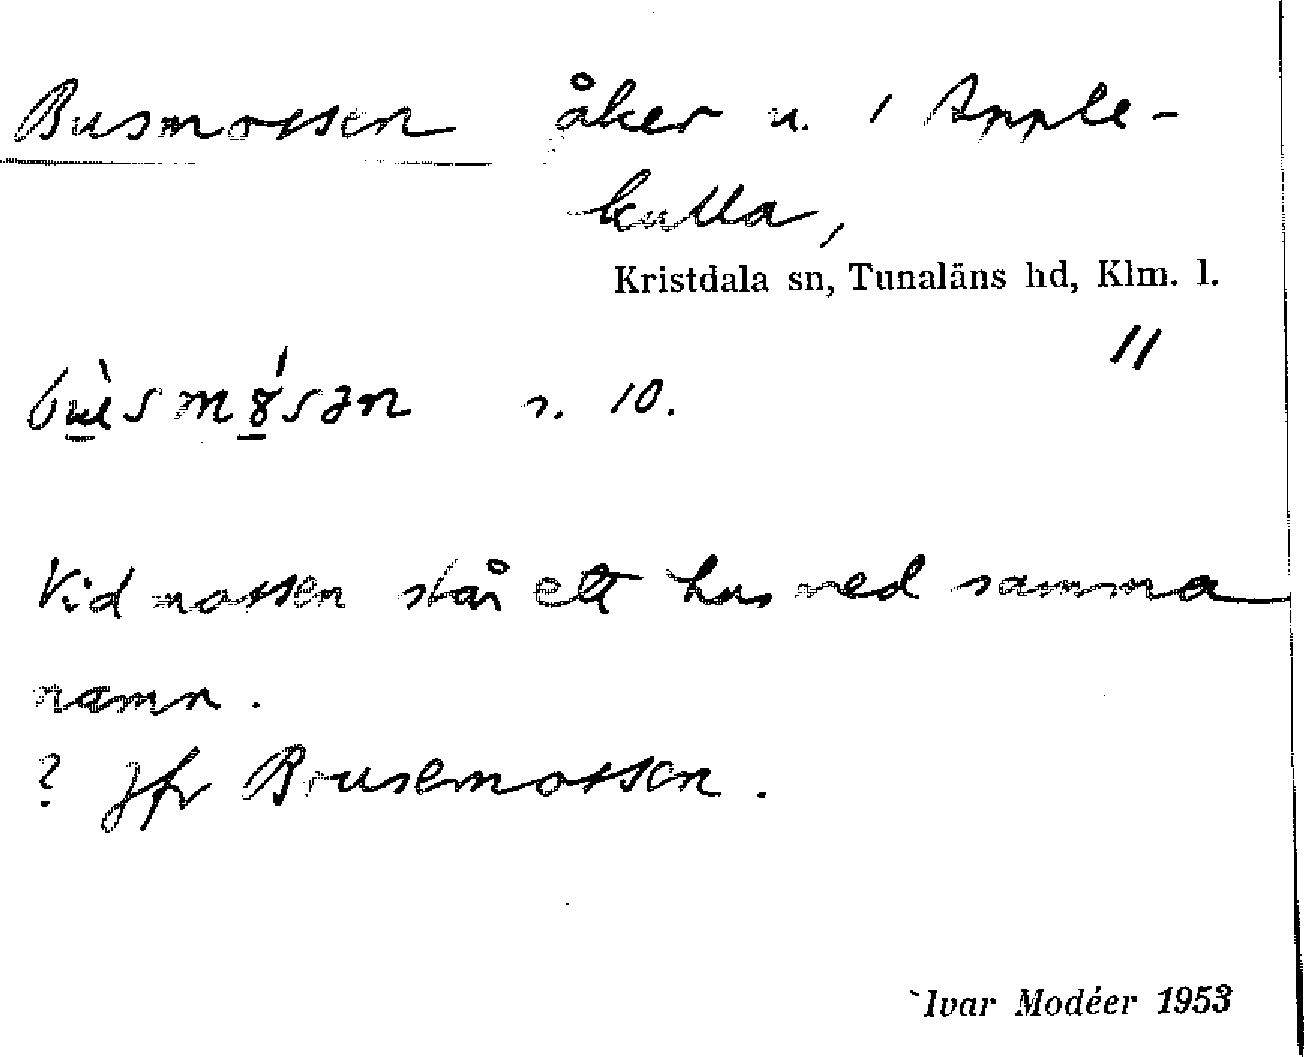 Busmossen åker n. i Apple-
kulla,
Kristdala sn, Tunaläns hd, Klm. l.
11
s. 10.
Vid mossen står ett hus med samma
namn.
? Jfr Brusemossen.
Ivar Modéer 1953